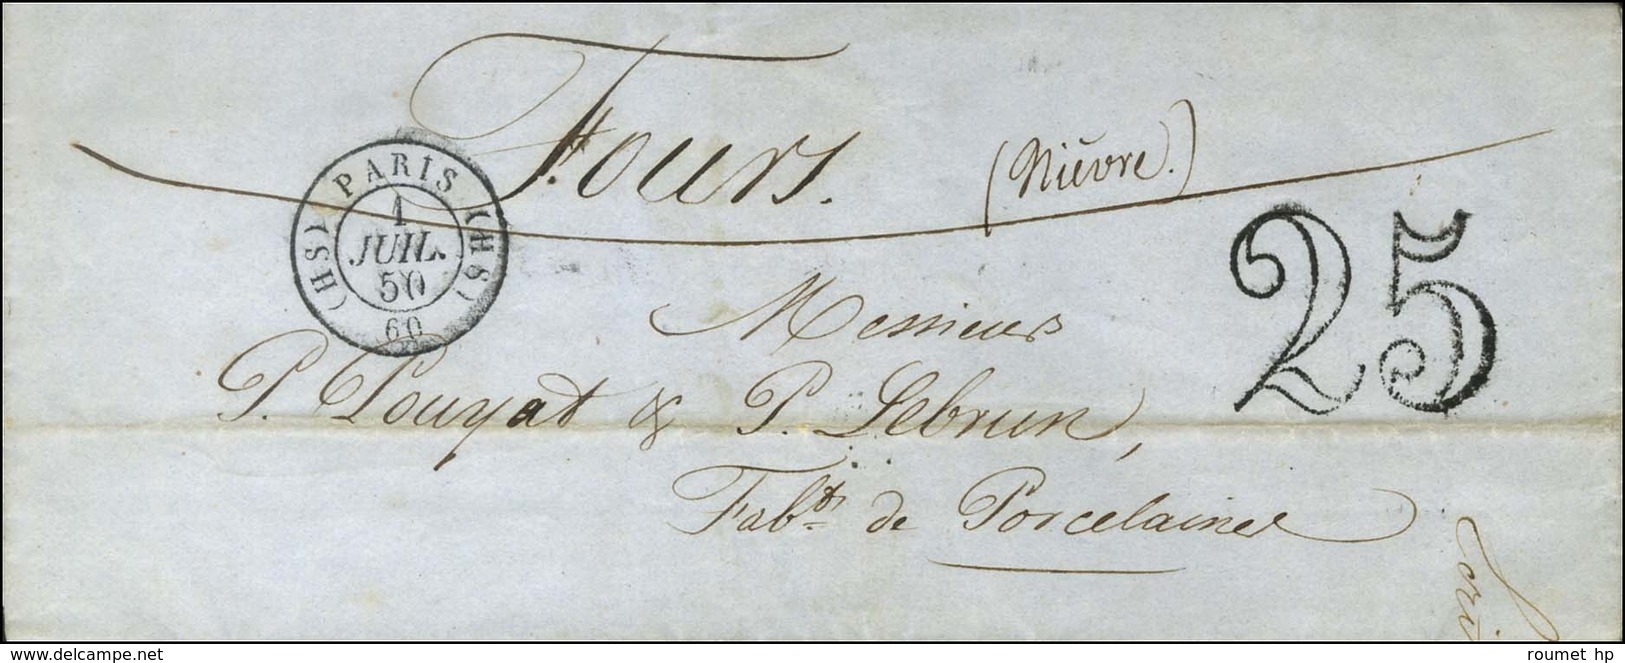 Fours. (Nièvre.)
PARIS (HS) (HS)
1
JUIL.
50
60
25
Messieurs
P. Pouyat & P. Lebrun,
Fabts de Porcelaines
www.delcampe.net
roumet hp